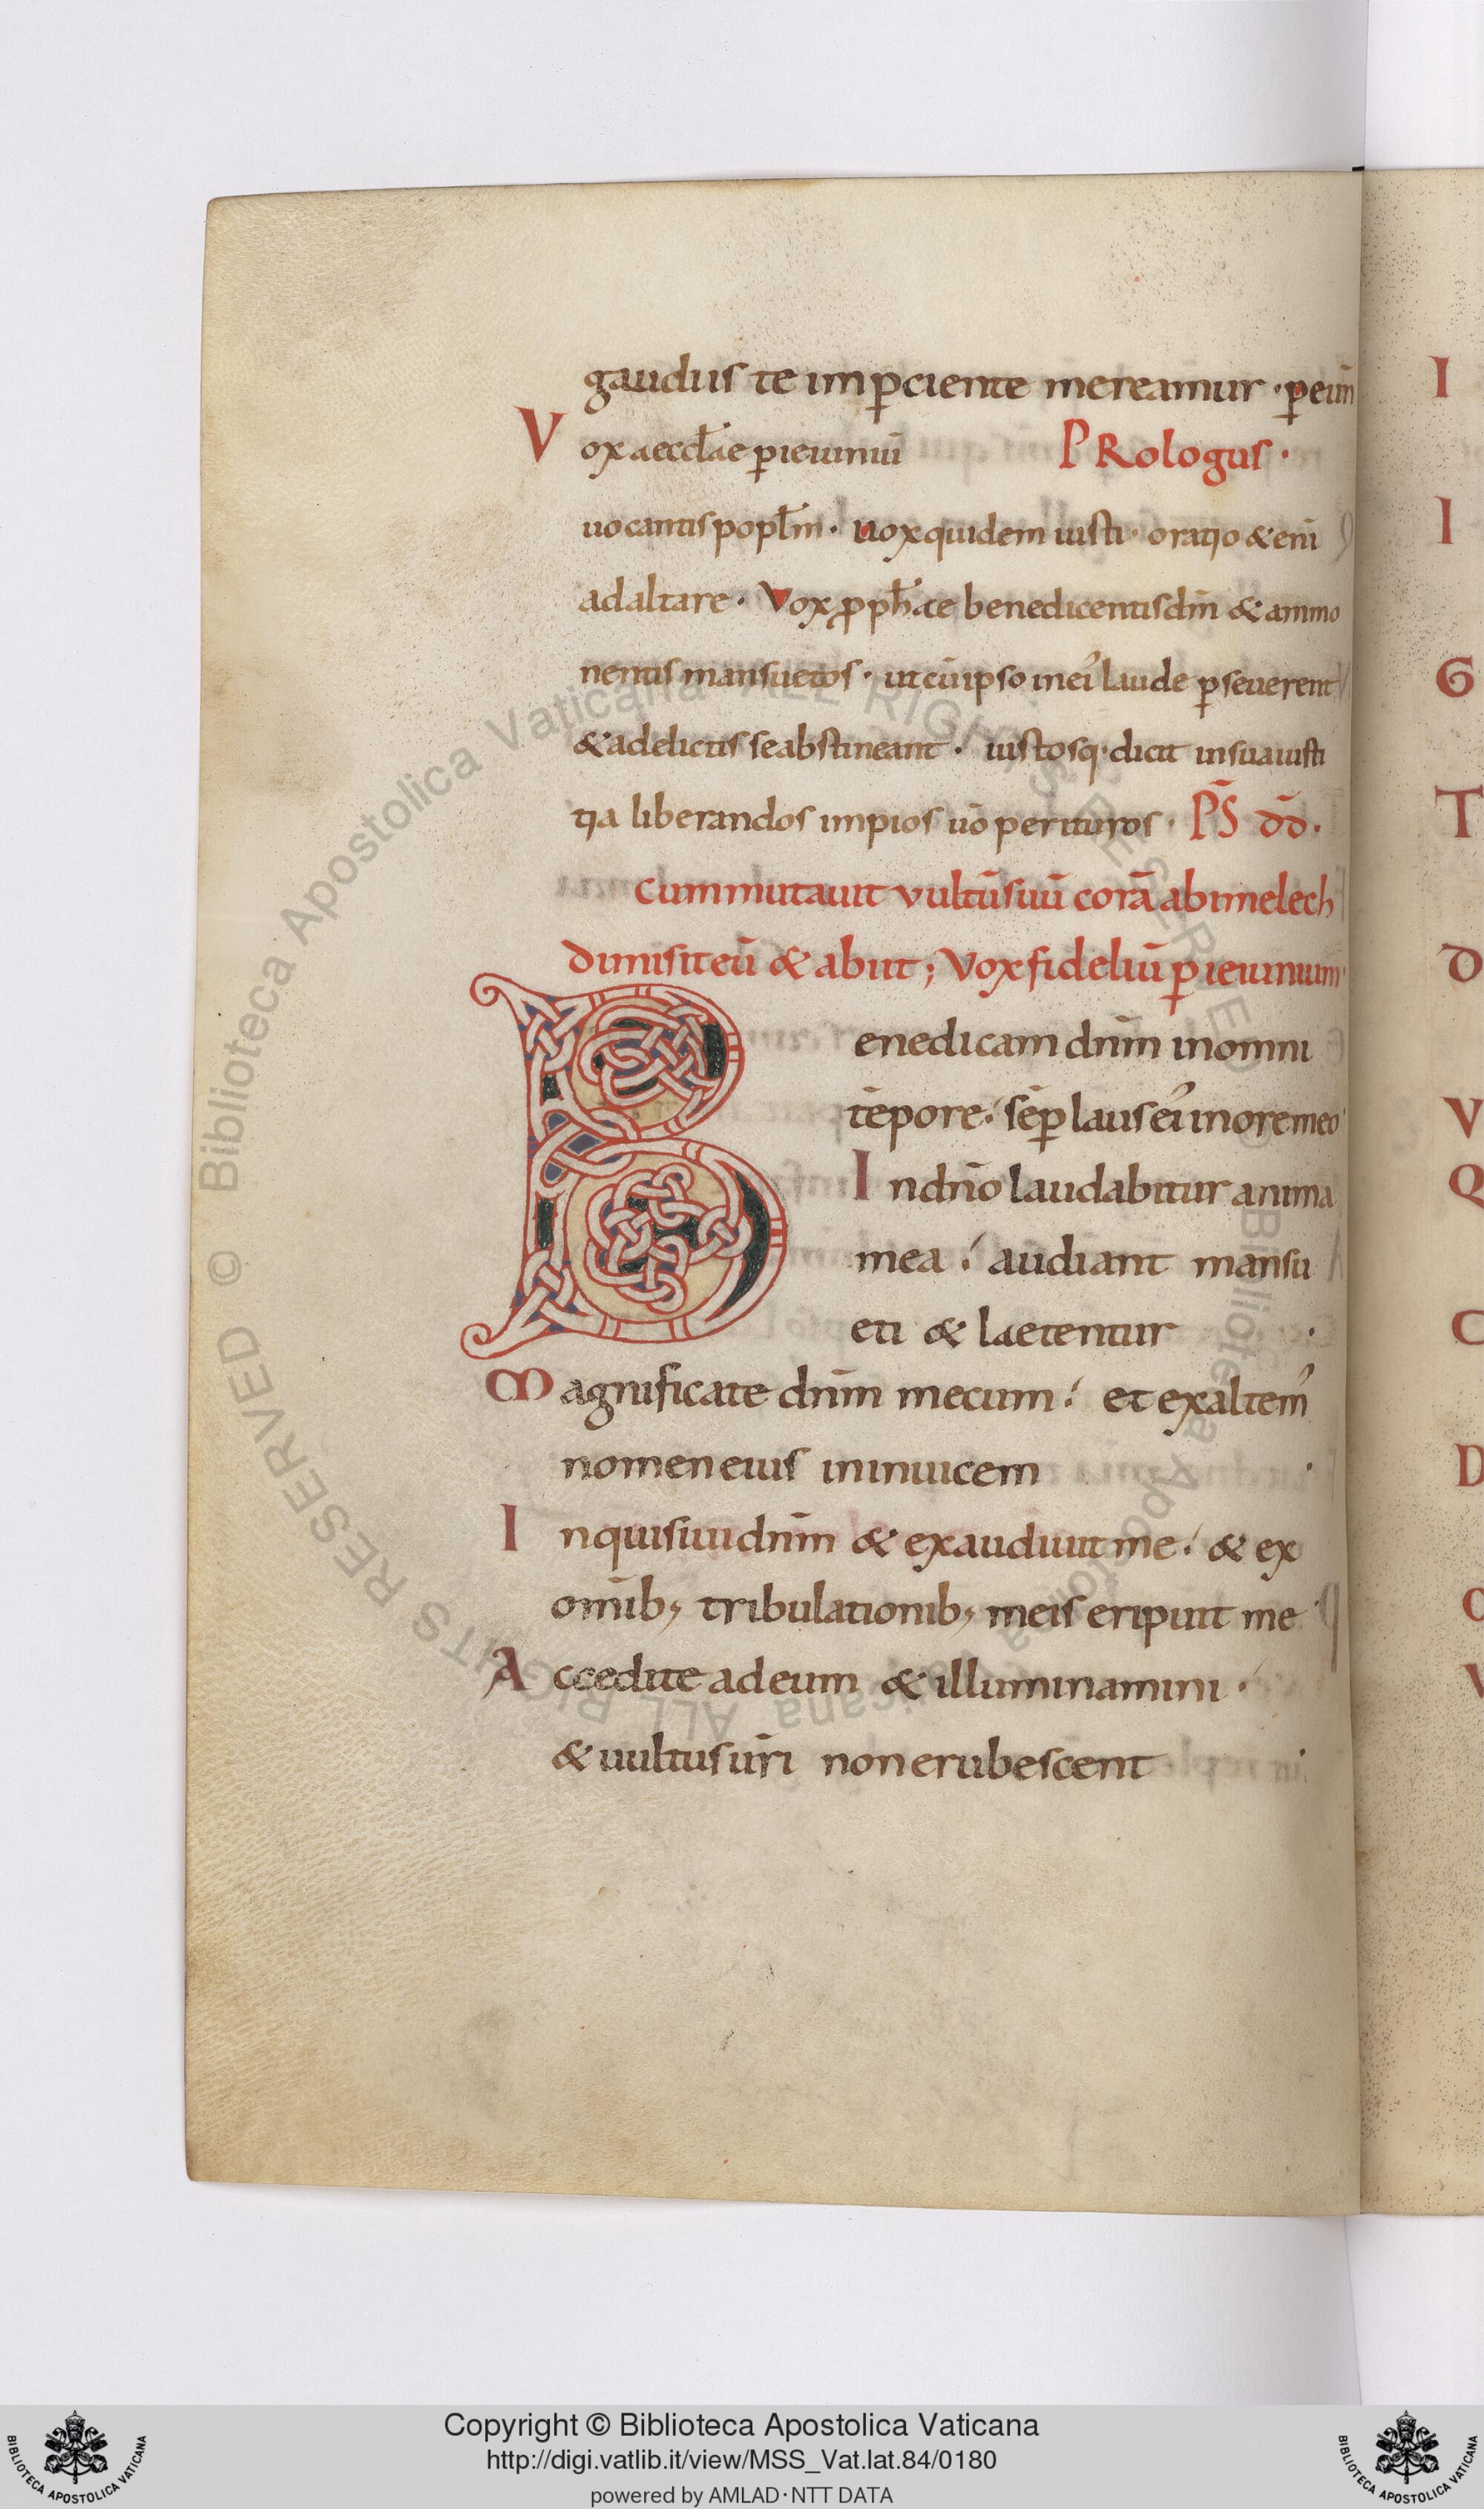 gaudiis te imp̄ciente mereamur · p̄ eun̄
Vox aeccl̄ae p̄ ieiuniū PRologus ·
uocantis popl̄m · uox quidem iusti · oratio & enī
ad altare · Vox p̄ph̄ae benedicentis dn̄i & ammo
nentis mansuetos · ut cū ipso inei᾿ laude p̄seuerent
& a delictis se abstineant · iustosq· dicit in sua iusti
tia liberandos impios uō perituros · PS̄ dd̄ ·
cum mutauit vultū suū corā abimelech
dimisit eū & abiit ; Vox fideliū p̄ ieiunium
Benedicam dn̄m in omni
tēpore · sēp̄ laus ei᾿ in ore meo
In dn̄o laudabitur anima
mea · audiant mansu
eti & laetentur ·
Magnificate dn̄m mecum · et exaltem᾿
nomen eius in inuicem ·
Inquisiui dn̄m & exaudiuit me · & ex
om̄ib; tribulationib; meis eripuit me
Accedite ad eum & illuminamini ·
& uultus ur̄i non erubescent ·
I
I
G
T
D
V
Q
C
D
Copyright © Biblioteca Apostolica Vaticana
http://digi.vatlib.it/view/MSS_Vat.lat.84/0180
powered by AMLAD·NTT DATA
BIBLIOTECA APOSTOLICA VATICANA
BIBLIOTECA APOSTOLICA VATICANA
© Biblioteca Apostolica Vaticana ALL RIGHTS RESERVED © Biblioteca Apostolica Vaticana ALL RIGHTS RESERVED